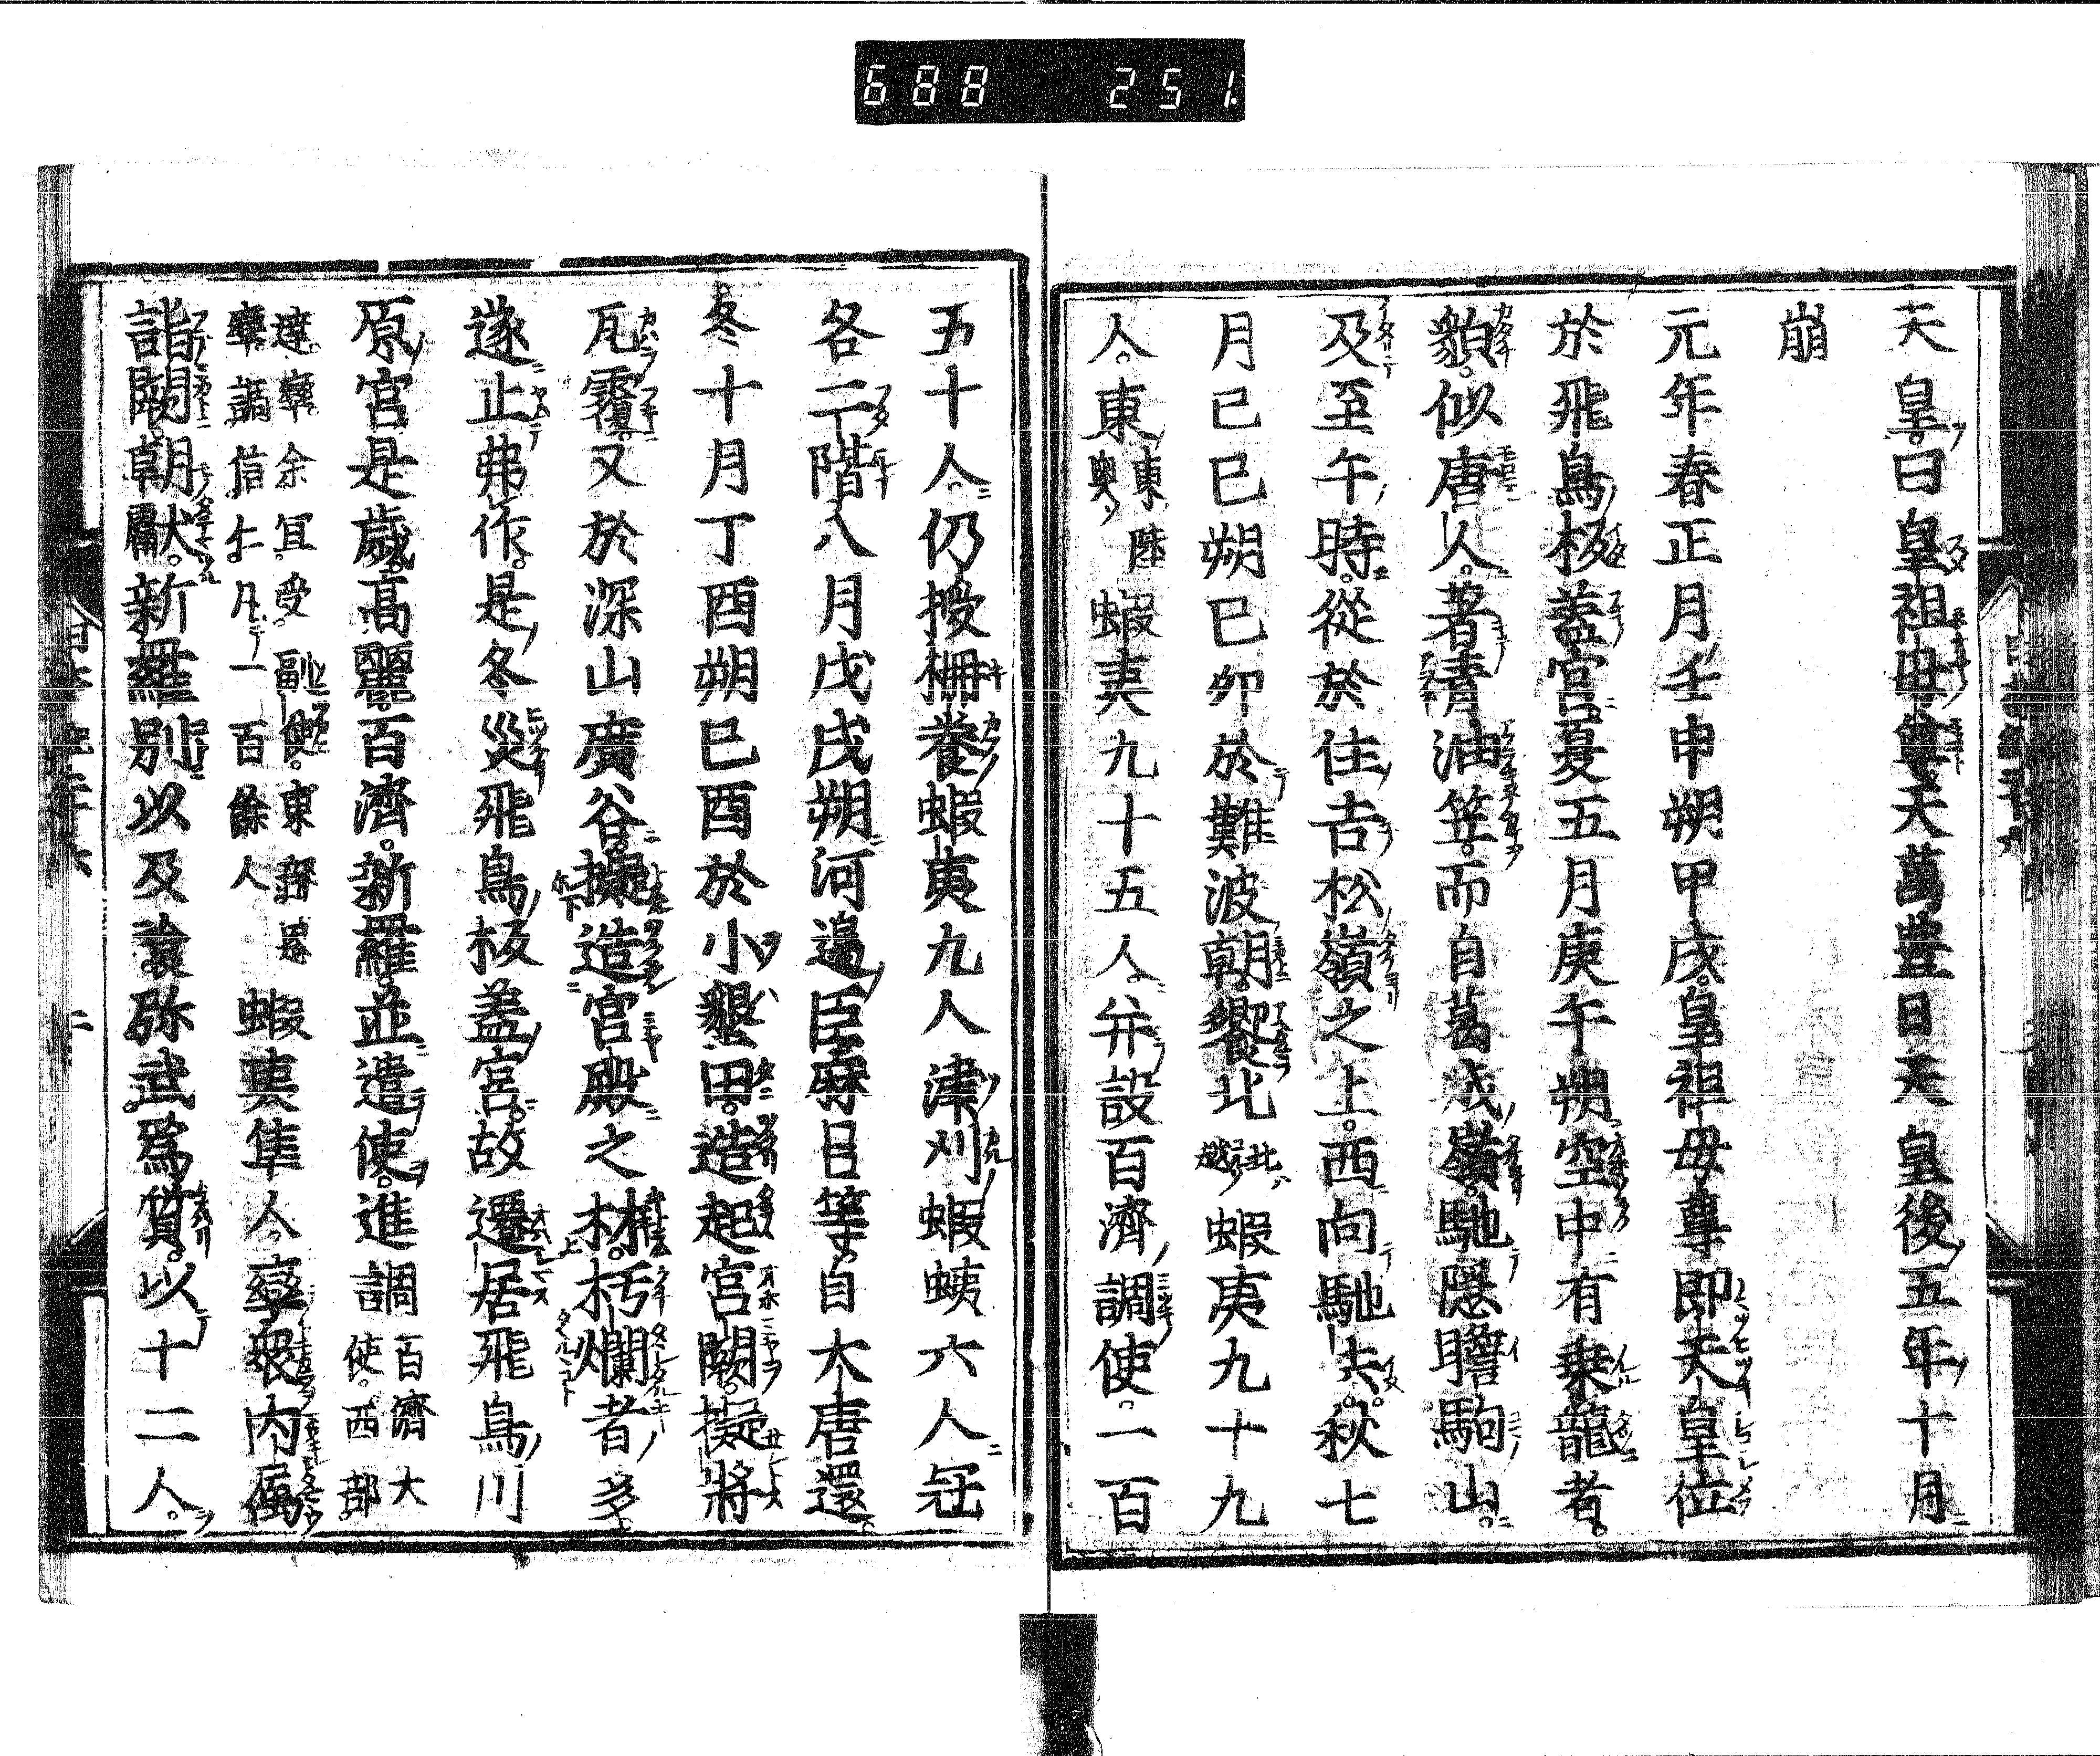 688 251
天皇曰皇祖母尊天萬豊日天皇後五年十月
崩
元年春正月壬申朔甲戌皇祖母尊即天皇位
於飛鳥板蓋宮夏五月庚午朔空中有乗龍者
貌似唐人著青油笠而自葛城嶺馳隠膽駒山
及至午時從於住吉松嶺之上西向馳去秋七
月己巳朔己卯於難波朝饗北北越蝦夷九十九
人東東陸奥蝦夷九十五人并設百濟調使一百
五十人仍授柵養蝦夷九人津刈蝦蛦六人冠
各二階八月戊戌朔河邊臣麻呂等自大唐還
冬十月丁酉朔己酉於小墾田造起宮闕擬將
瓦覆又於深山廣谷擬造宮殿之材朽爛者多
遂止弗作是冬災飛鳥板蓋宮故遷居飛鳥川
原宮是歳高麗百濟新羅並遣使進調百濟大使西部
達率余冝受副使東部恩率調信仁凡一百餘人蝦夷隼人率衆内属
詣闕朝献新羅別以及飡弥武爲質以十二人